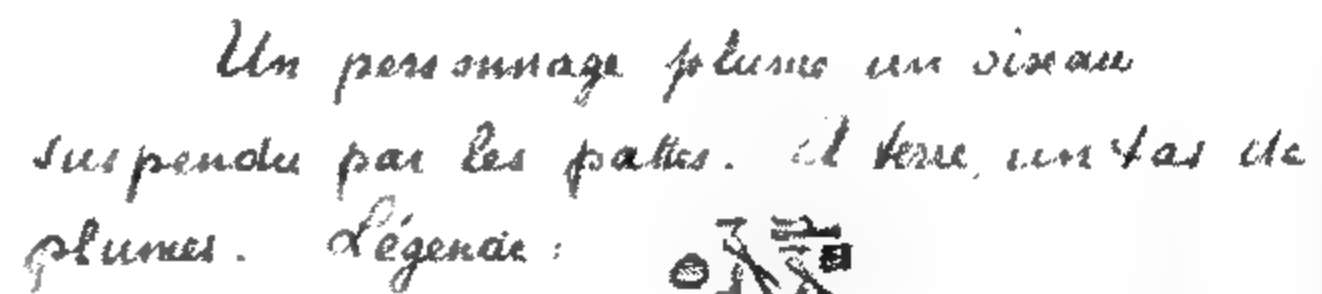 Un personnage plume un oiseau
suspendu par les pattes. A terre, un tas de
plumes. Légende :